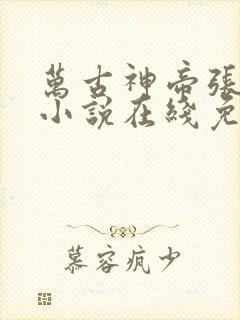 萬古神帝張
小說在綫免
慕容疯少